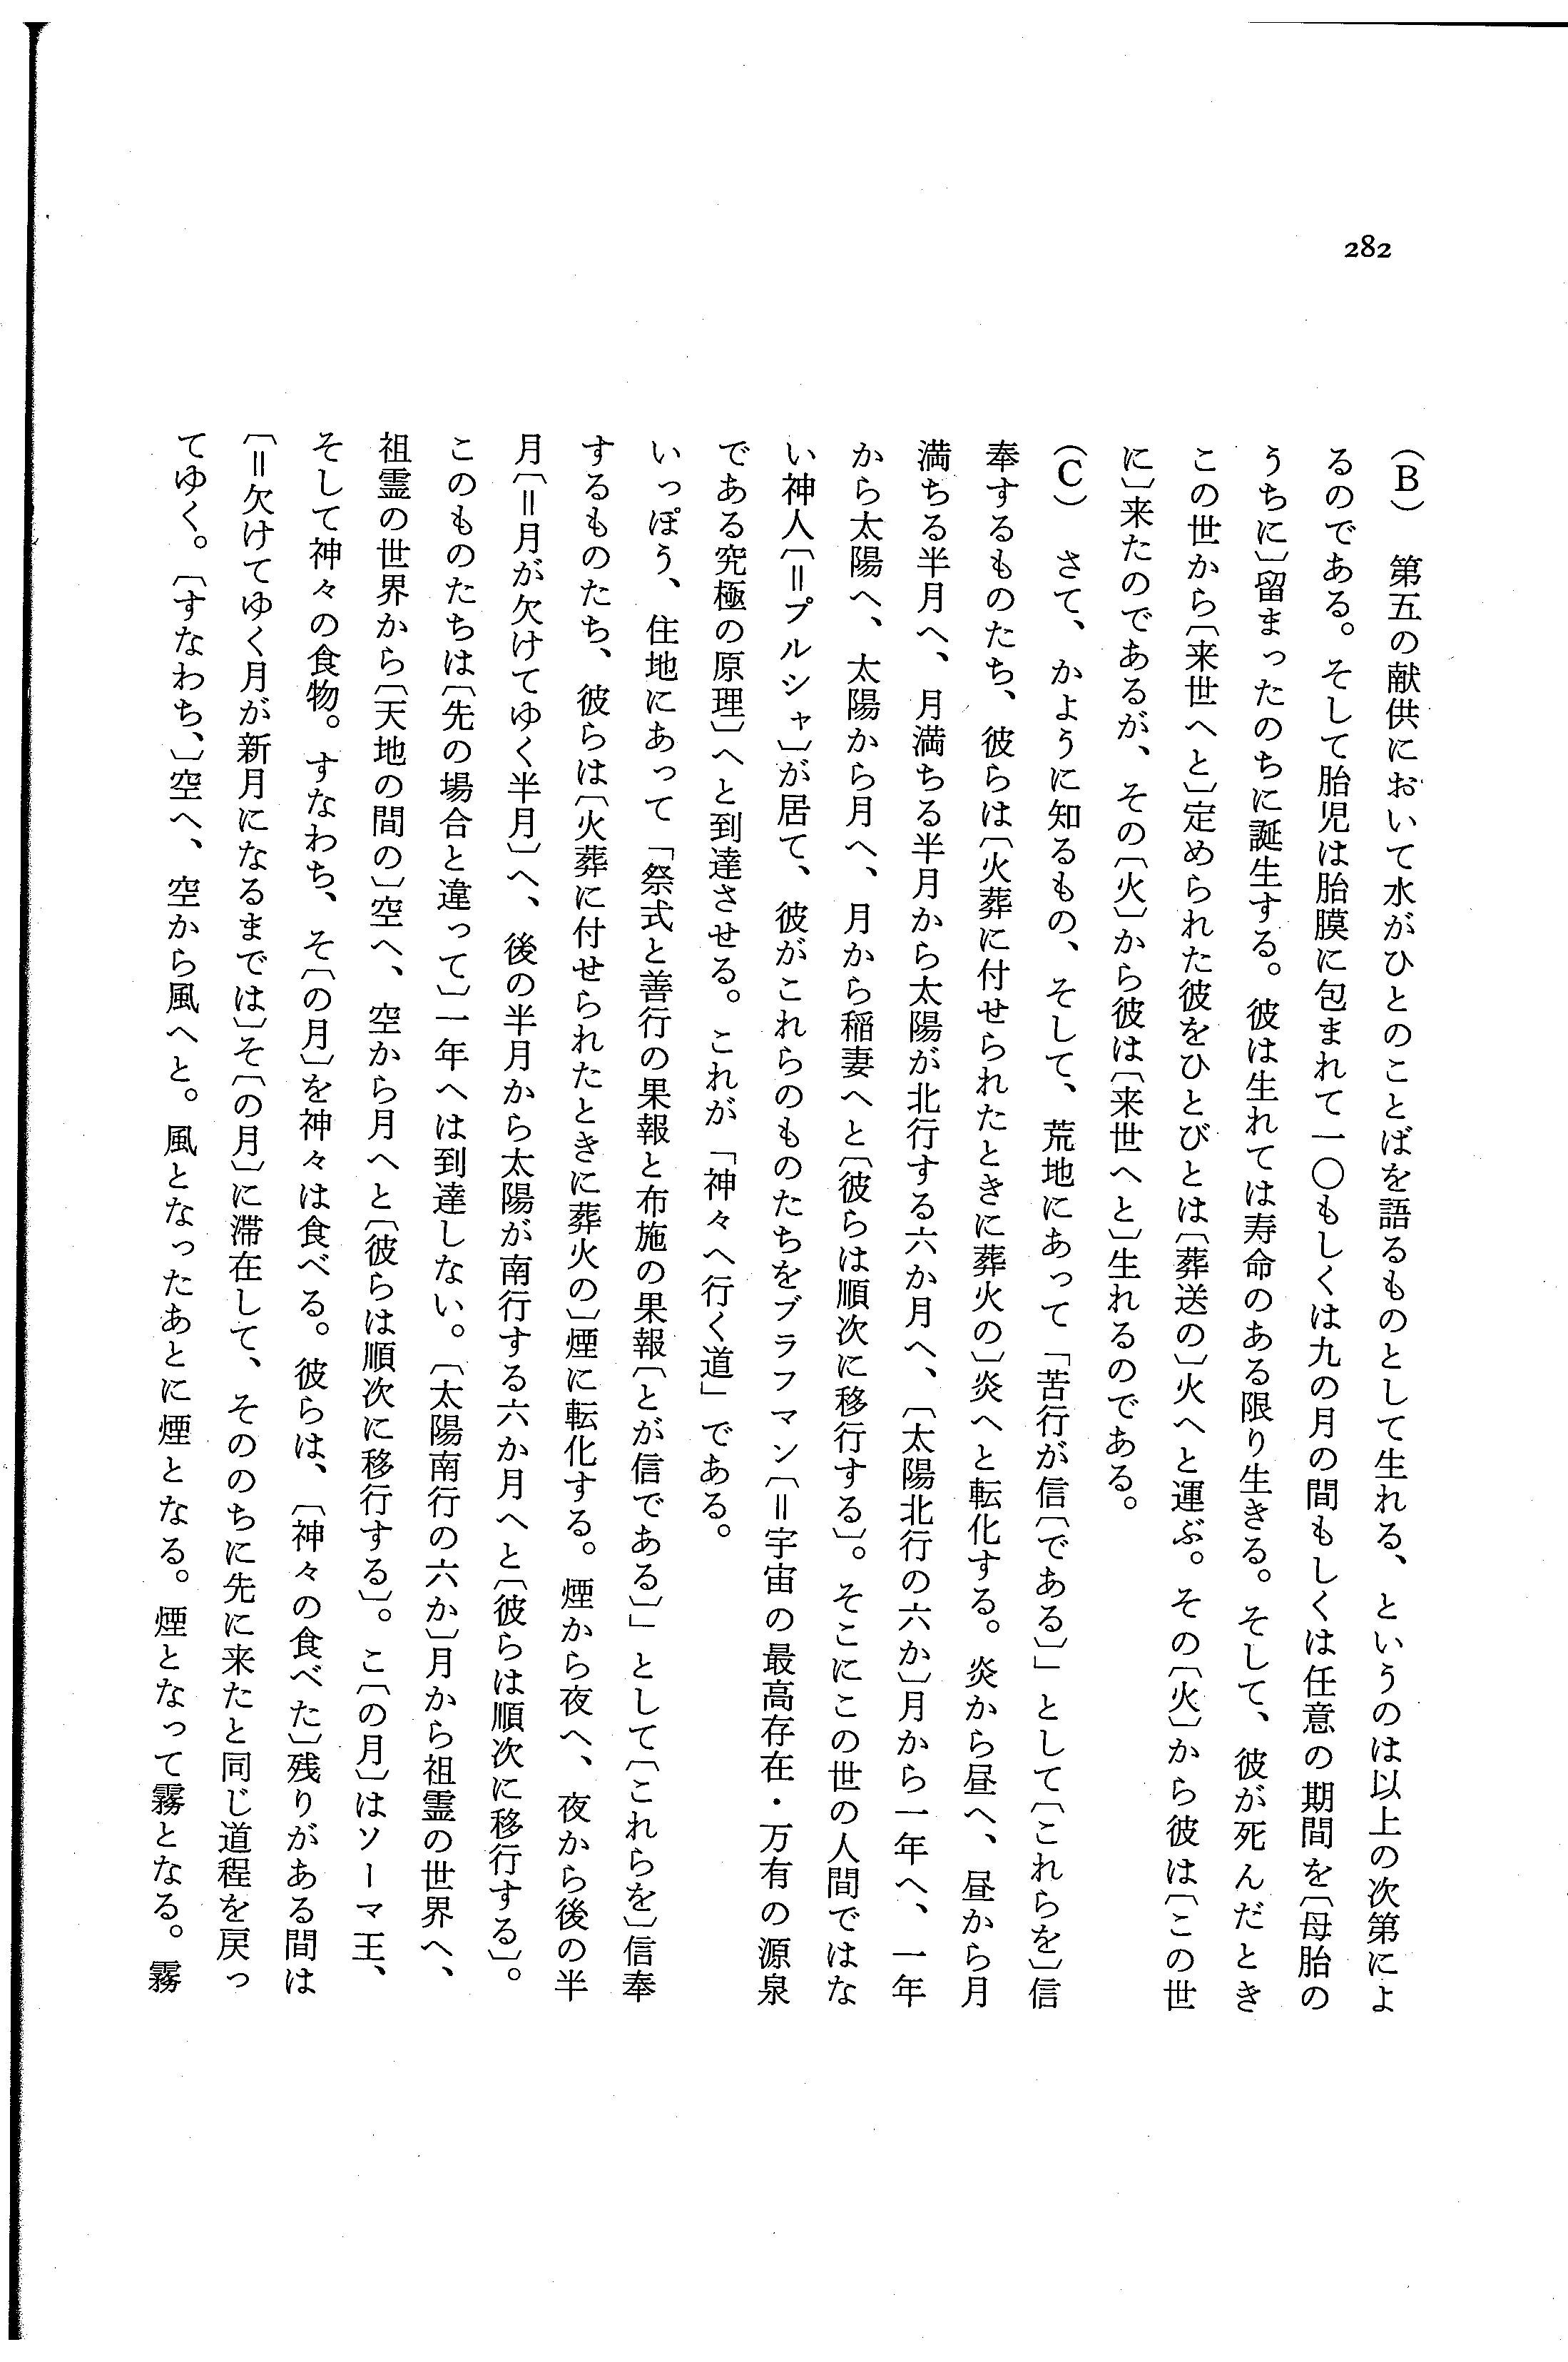 282
(B)　第五の献供において水がひとのことばを語るものとして生れる、というのは以上の次第によ
るのである。そして胎児は胎膜に包まれて一〇もしくは九の月の間もしくは任意の期間を〔母胎の
うちに〕留まったのちに誕生する。彼は生れては寿命のある限り生きる。そして、彼が死んだとき
この世から〔来世へと〕定められた彼をひとびとは〔葬送の〕火へと運ぶ。その〔火〕から彼は〔この世
に〕来たのであるが、その〔火〕から彼は〔来世へと〕生れるのである。
(C)　さて、かように知るもの、そして、荒地にあって「苦行が信〔である〕」として〔これらを〕信
奉するものたち、彼らは〔火葬に付せられたときに葬火の〕炎へと転化する。炎から昼へ、昼から月
満ちる半月へ、月満ちる半月から太陽が北行する六か月へ、〔太陽北行の六か〕月から一年へ、一年
から太陽へ、太陽から月へ、月から稲妻へと〔彼らは順次に移行する〕。そこにこの世の人間ではな
い神人〔＝プルシャ〕が居て、彼がこれらのものたちをブラフマン〔＝宇宙の最高存在・万有の源泉
である究極の原理〕へと到達させる。これが「神々へ行く道」である。
いっぽう、住地にあって「祭式と善行の果報と布施の果報〔とが信である〕」として〔これらを〕信奉
するものたち、彼らは〔火葬に付せられたときに葬火の〕煙に転化する。煙から夜へ、夜から後の半
月〔＝月が欠けてゆく半月〕へ、後の半月から太陽が南行する六か月へと〔彼らは順次に移行する〕。
このものたちは〔先の場合と違って〕一年へは到達しない。〔太陽南行の六か〕月から祖霊の世界へ、
祖霊の世界から〔天地の間の〕空へ、空から月へと〔彼らは順次に移行する〕。こ〔の月〕はソーマ王、
そして神々の食物。すなわち、そ〔の月〕を神々は食べる。彼らは、〔神々の食べた〕残りがある間は
〔＝欠けてゆく月が新月になるまでは〕そ〔の月〕に滞在して、そののちに先に来たと同じ道程を戻っ
てゆく。〔すなわち、〕空へ、空から風へと。風となったあとに煙となる。煙となって霧となる。霧